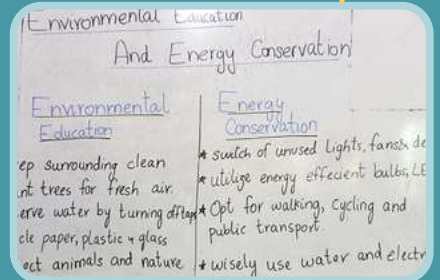 Environmental Education
And Energy Conservation
Environmental
Education
ep surrounding clean
nt trees for fresh air.
erve water by turning off tap
cle paper, plastic & glass
ect animals and nature
Energy
Conservation
* switch of unused Lights, fans& de
* utilize energy effecient bulbs, LE
* Opt for walking, Cycling and
public transport.
* wisely use water and electr